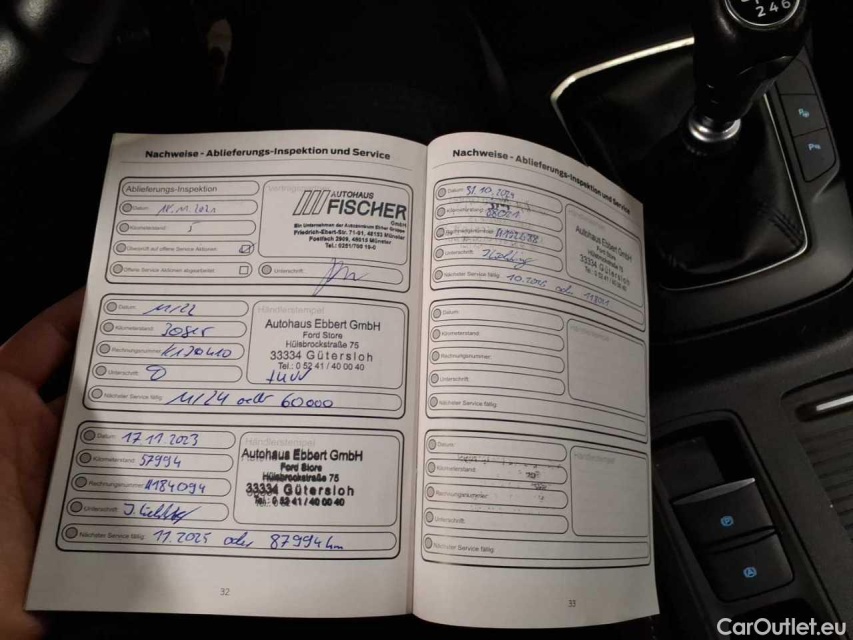 2 4 6
Nachweise - Ablieferungs-Inspektion und Service
Ablieferungs-Inspektion
Datum
Kilometerstand 5
Überprüft auf offene Service Aktionen
Offene Service Aktionen abgearbeitet
Unterschrift
AUTOHAUS
FISCHER
GmbH
Ein Unternehmen der
Friedrich-Ebert-Str. 71-91, 48153 Münster
Postfach 2909, 48015 Münster
Tel.: 0251/798 19-0
Datum 11/22
Kilometerstand
Rechnungsnummer
Unterschrift
Nächster Service fällig 11/24 oder 60000
Händlerstempel
Autohaus Ebbert GmbH
Ford Store
Hülsbrockstraße 75
33334 Gütersloh
Tel.: 0 52 41 / 40 00 40
Datum 17 11 2023
Kilometerstand 57994
Rechnungsnummer 1184094
Unterschrift
Nächster Service fällig 11.2025 oder 87994 km
Händlerstempel
Autohaus Ebbert GmbH
Ford Store
Hülsbrockstraße 75
33334 Gütersloh
Tel.: 0 52 41 / 40 00 40
32
Nachweise - Ablieferungs-Inspektion und Service
Datum 31.10.2024
Kilometerstand
Unterschrift
Nächster Service fällig 10.2026 oder
Autohaus Ebbert GmbH
Ford Store
Hülsbrockstraße 75
33334 Gütersloh
Datum
Kilometerstand
Rechnungsnummer
Unterschrift
Nächster Service fällig
Händlerstempel
Datum
Kilometerstand
Rechnungsnummer
Unterschrift
Nächster Service fällig
Händlerstempel
33
CarOutlet.eu